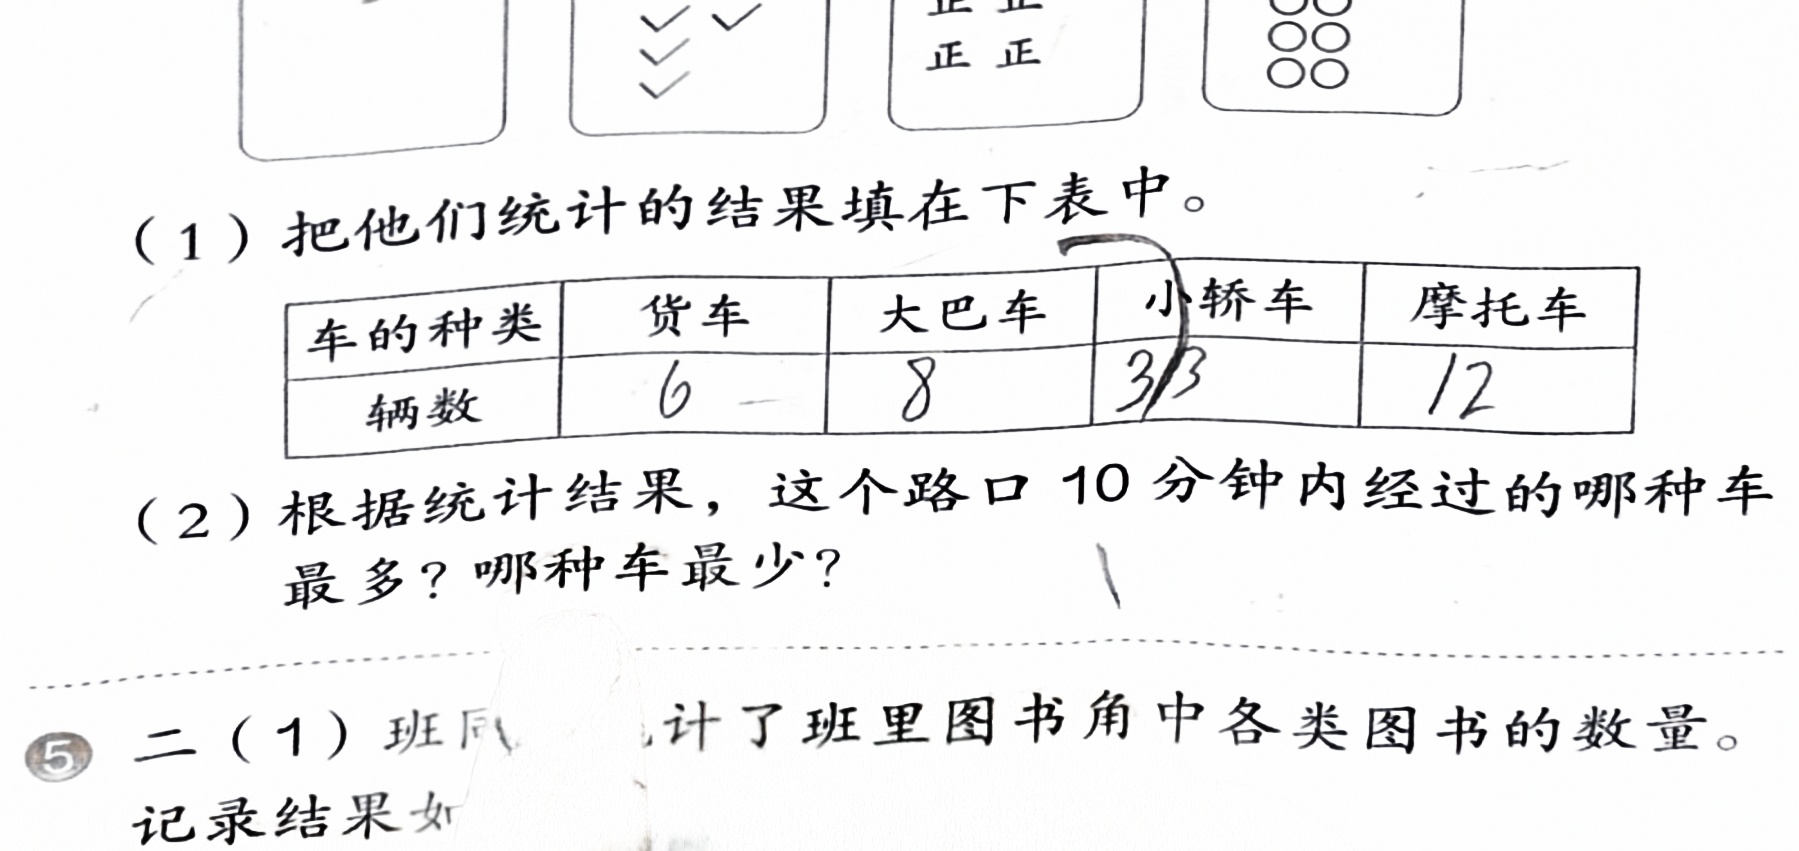 正 正
正 正
（1）把他们统计的结果填在下表中。
车的种类 货车 大巴车 小轿车 摩托车
辆数 6 8 33 12
（2）根据统计结果，这个路口 10 分钟内经过的哪种车
最多？哪种车最少？
5 二（1）班同 计了班里图书角中各类图书的数量。
记录结果如